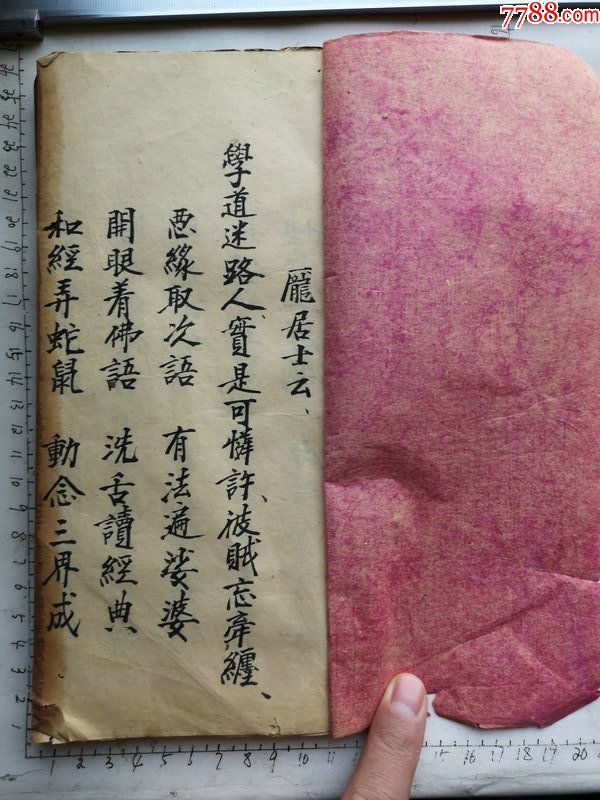 7788.com
龎居士云、
學道迷路人、實是可憐許、彼賊忘牽纏、
悪緣取次語 有法遍娑婆
開眼着佛語 洗舌讀經典
和經弄蛇鼠 動念三界成